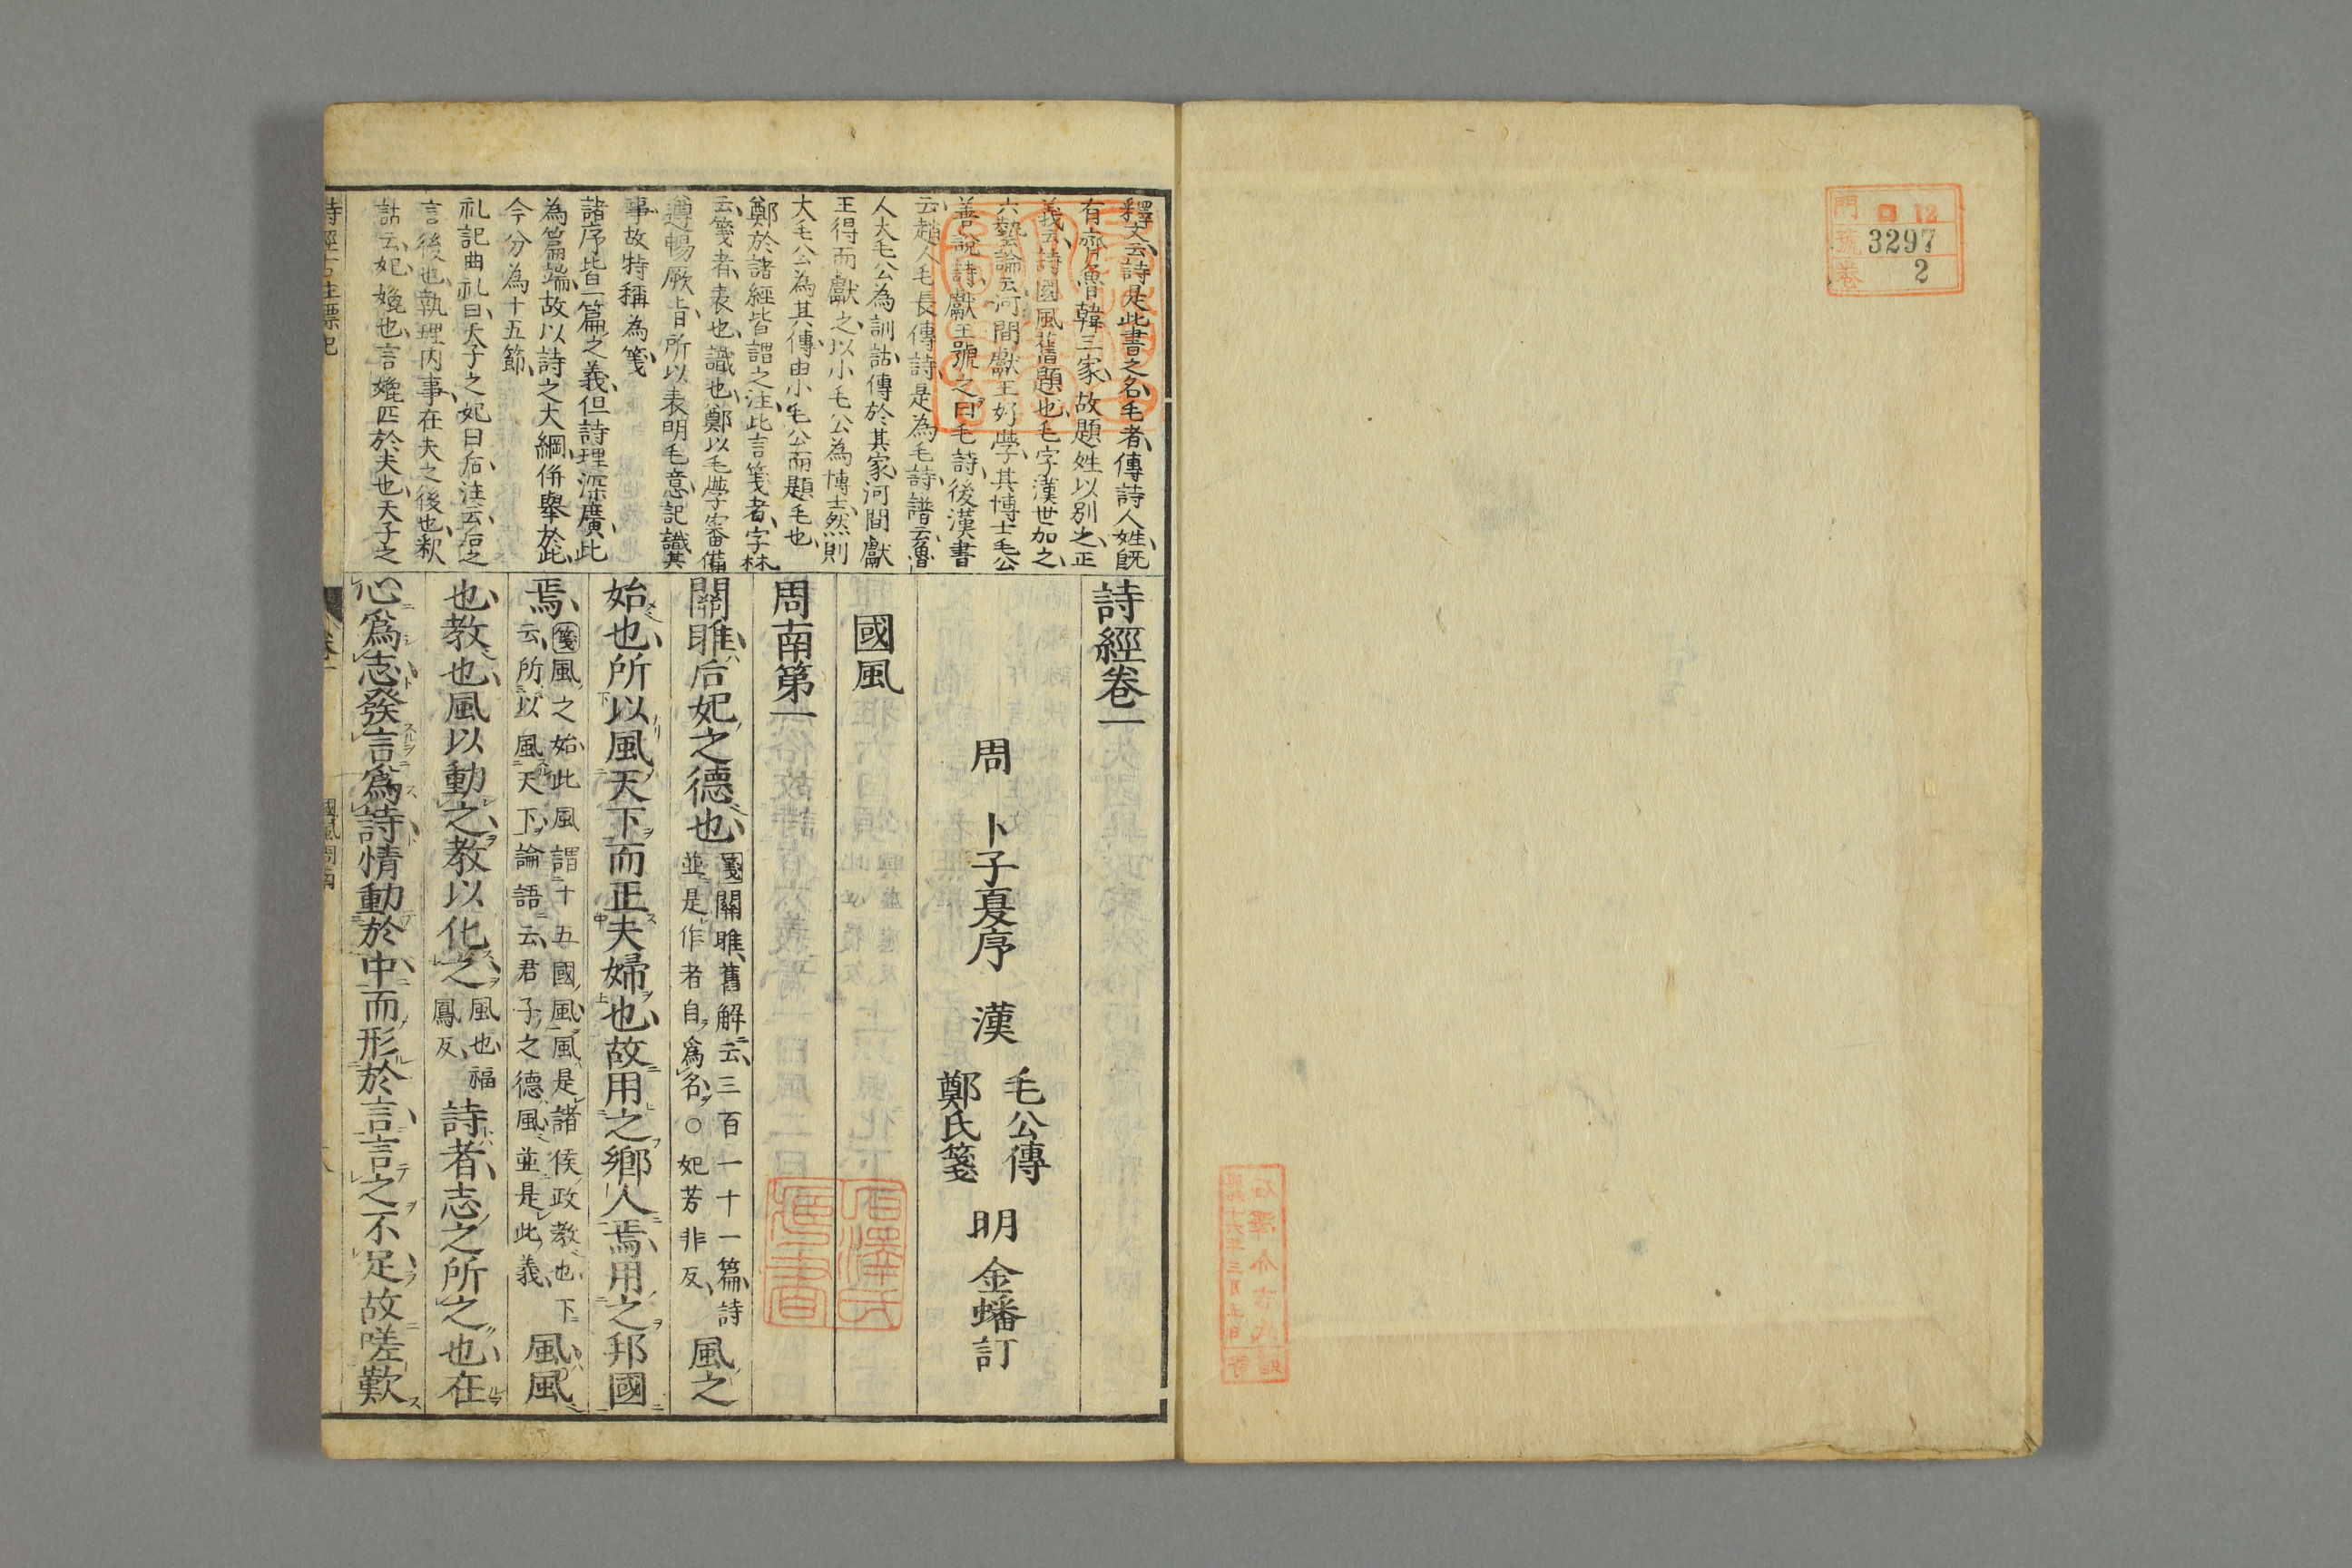 門 ロ 12
號 3297
卷 2
釋文云詩是此書之名毛者傳詩人姓既
有齊魯韓三家故題姓以別之正
義云詩國風舊題也毛字漢世加之
六藝論云河間獻王好學其博士毛公
善說詩獻王號之曰毛詩後漢書
云趙人毛長傳詩是為毛詩譜云魯
人大毛公為訓詁傳於其家河間獻
王得而獻之以小毛公為博士然則
大毛公為其傳由小毛公而題毛也
鄭於諸經皆謂之注此言箋者字林
云箋者表也識也鄭以毛學審備
遵暢厥旨所以表明毛意記識其
事故特稱為箋
諸序皆一篇之義但詩理深廣此
為篇端故以詩之大綱併舉於此
今分為十五節
礼記曲礼曰天子之妃曰后注云后之
言後也執理内事在夫之後也釈
詁云妃媲也言媲匹於夫也天子之
詩經卷一
周 卜子夏序 漢 毛公傳 鄭氏箋 明 金蟠訂
國風
周南第一
關雎后妃之德也 箋關雎舊解云三百一十一篇詩 並是作者自爲名○妃芳非反 風之
始也所以風天下而正夫婦也故用之鄉人焉用之邦國
焉 箋風之始此風謂十五國風風是諸侯政教也下 云所以風天下論語云君子之德風並是此義 風風
也教也風以動之教以化之 風也福 鳳反 詩者志之所之也在
心爲志發言爲詩情動於中而形於言言之不足故嗟歎
詩經古注標記 卷一 國風周南